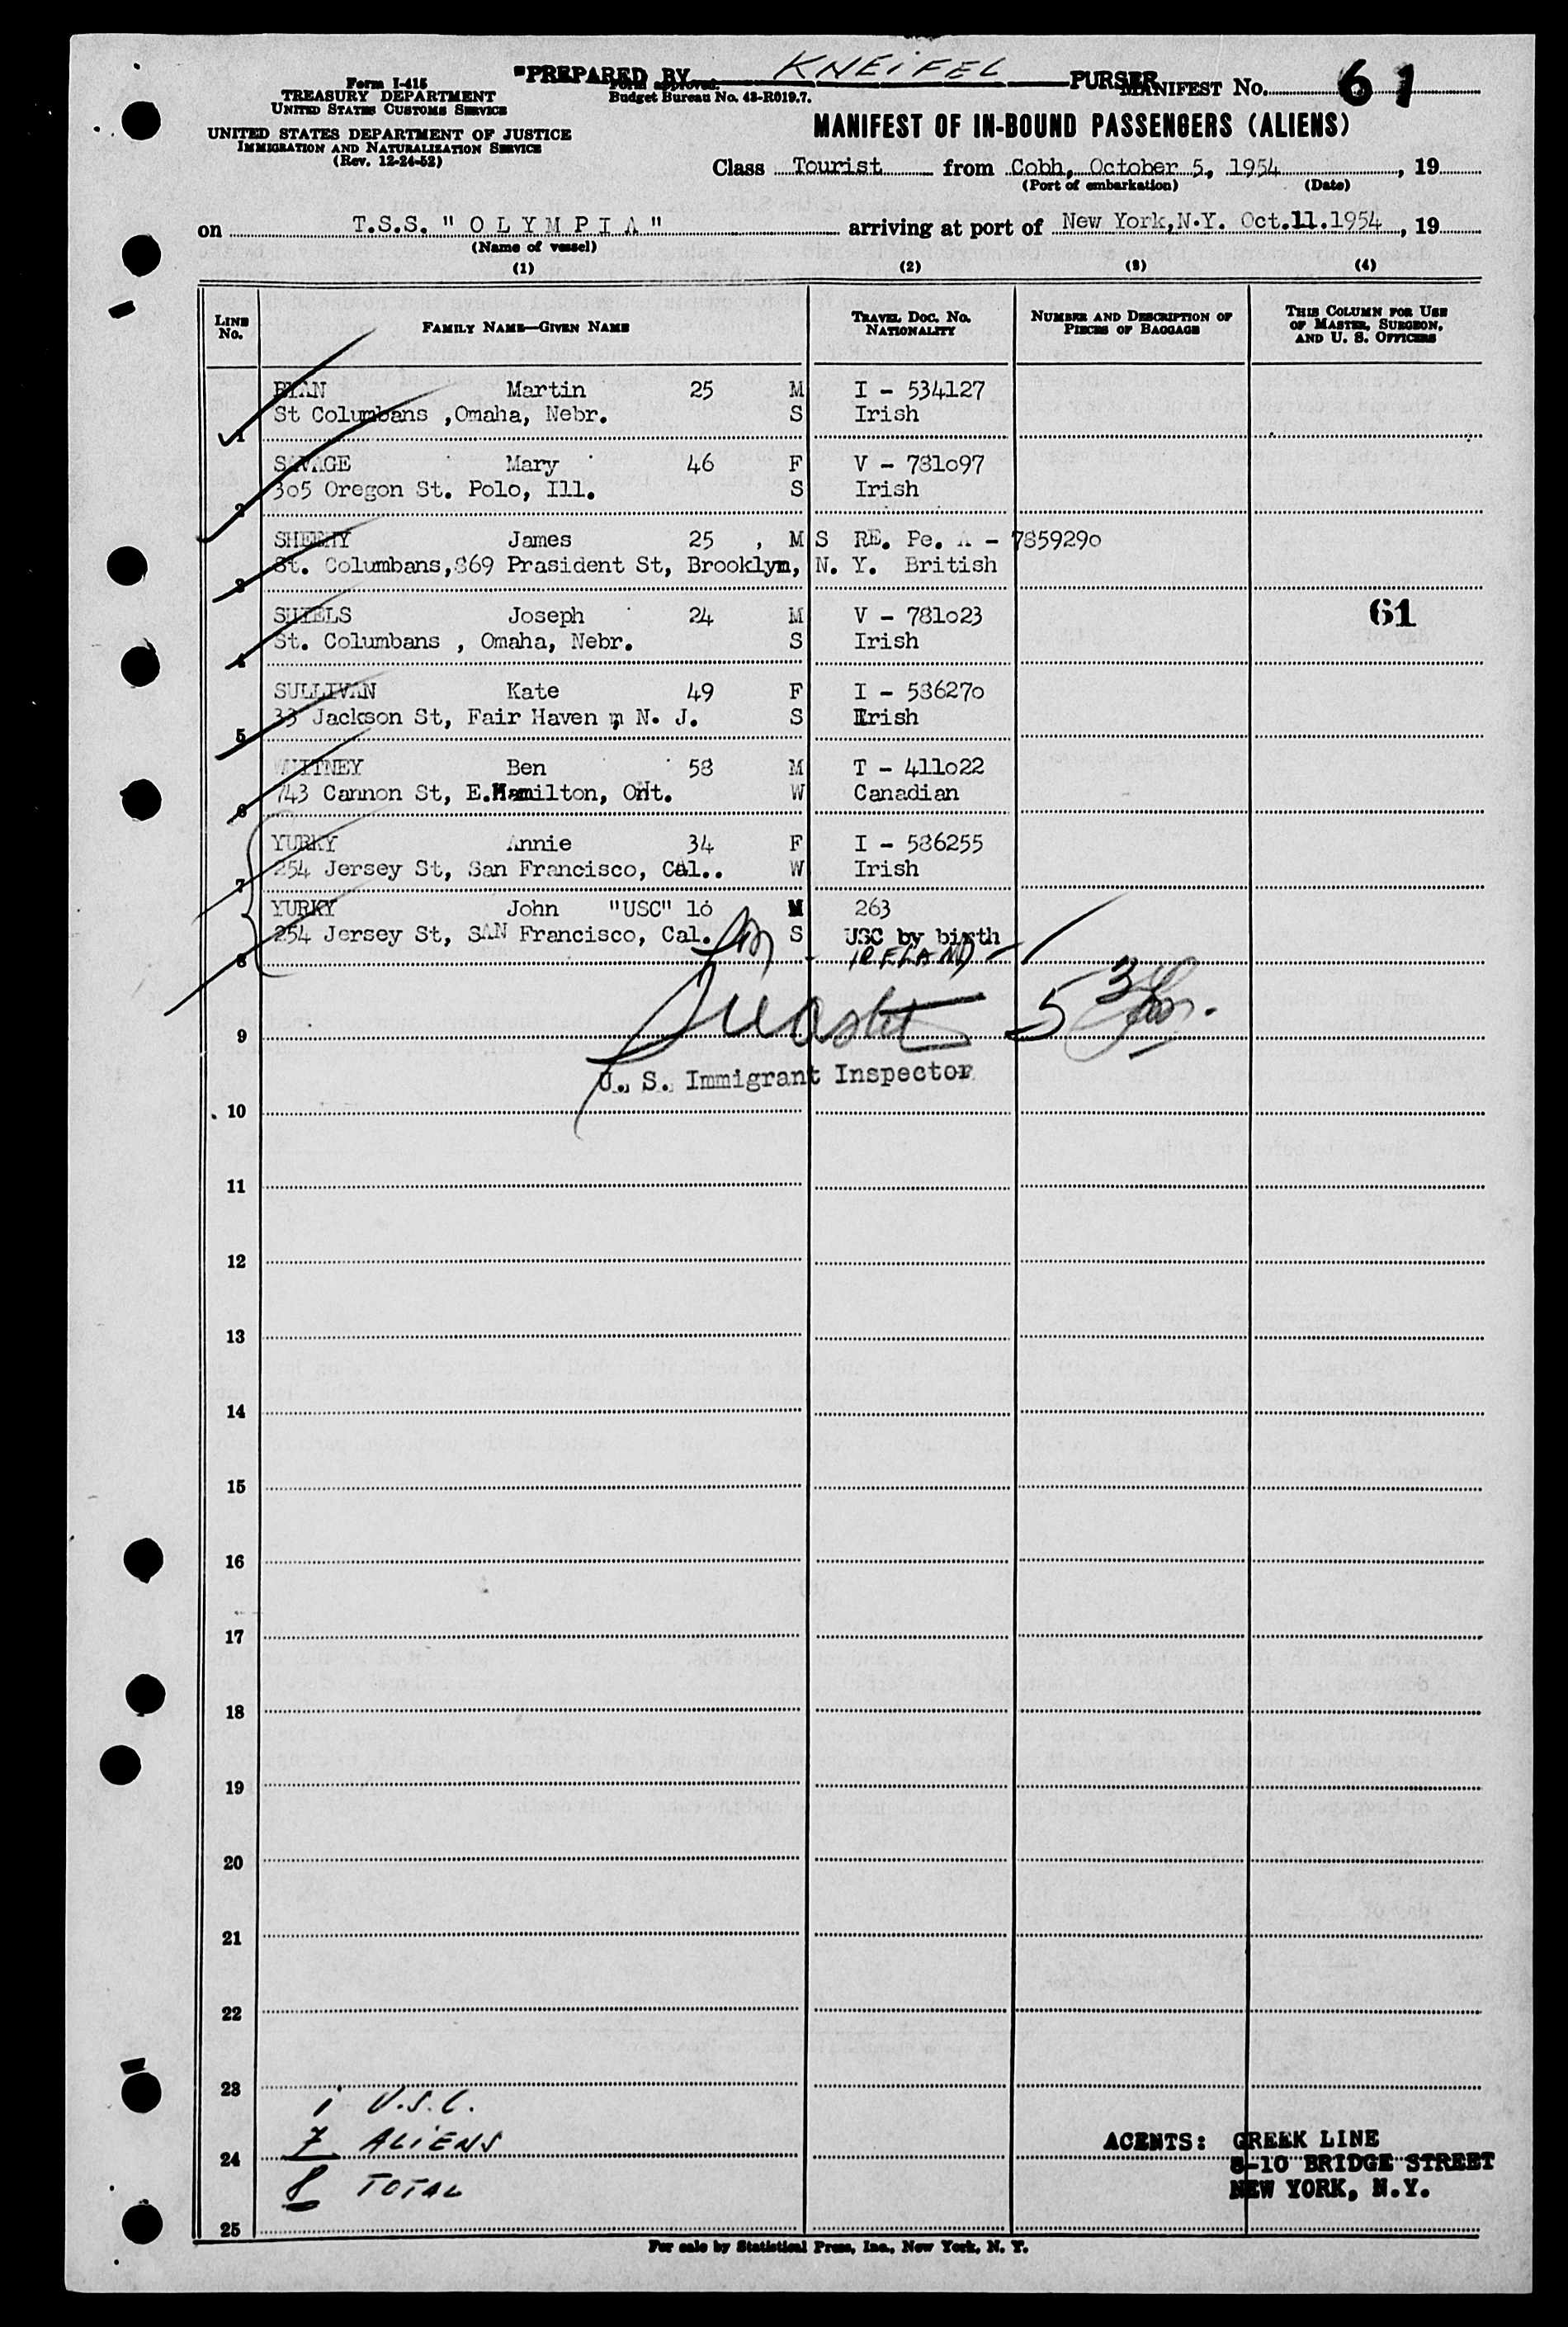 Form I-415
TREASURY DEPARTMENT
UNITED STATES CUSTOMS SERVICE
UNITED STATES DEPARTMENT OF JUSTICE
IMMIGRATION AND NATURALIZATION SERVICE
(Rev. 12-24-52)
PREPARED BY KNEIFEL PURSER
Form approved.
Budget Bureau No. 43-R019.7.
MANIFEST No. 61
MANIFEST OF IN-BOUND PASSENGERS (ALIENS)
Class Tourist from Cobh, October 5, 1954, 19
(Port of embarkation) (Date)
on T.S.S. " O L Y M P I A " arriving at port of New York,N.Y. Oct.11.1954, 19
(Name of vessel)
(1) (2) (3) (4)
LINE No. FAMILY NAME—GIVEN NAME TRAVEL DOC. NO. NATIONALITY NUMBER AND DESCRIPTION OF PIECES OF BAGGAGE THIS COLUMN FOR USE OF MASTER, SURGEON, AND U. S. OFFICERS
RYAN Martin 25 M I - 534127
1 St Columbans ,Omaha, Nebr. S Irish
SAVAGE Mary 46 F V - 781o97
2 3o5 Oregon St. Polo, Ill. S Irish
SHEEHY James 25 , M S RE. Pe. A - 785929o
3 St. Columbans,869 Prasident St, Brooklyn, N. Y. British
SHIELS Joseph 24 M V - 781o23
61
4 St. Columbans , Omaha, Nebr. S Irish
SULLIVAN Kate 49 F I - 58627o
5 33 Jackson St, Fair Haven , N. J. S Irish
WHITNEY Ben 58 M T - 411o22
6 743 Cannon St, E.Hamilton, Ont. W Canadian
YURKY Annie 34 F I - 586255
7 254 Jersey St, San Francisco, Cal.. W Irish
YURKY John "USC" 16 M 263
8 254 Jersey St, SAN Francisco, Cal. S USC by birth
IRELAND
9
U. S. Immigrant Inspector
10
11
12
13
14
15
16
17
18
19
20
21
22
23
1 U.S.C.
7 ALIENS
24
8 TOTAL
25
AGENTS: GREEK LINE
8-10 BRIDGE STREET
NEW YORK, N.Y.
For sale by Statistical Press, Inc., New York, N. Y.